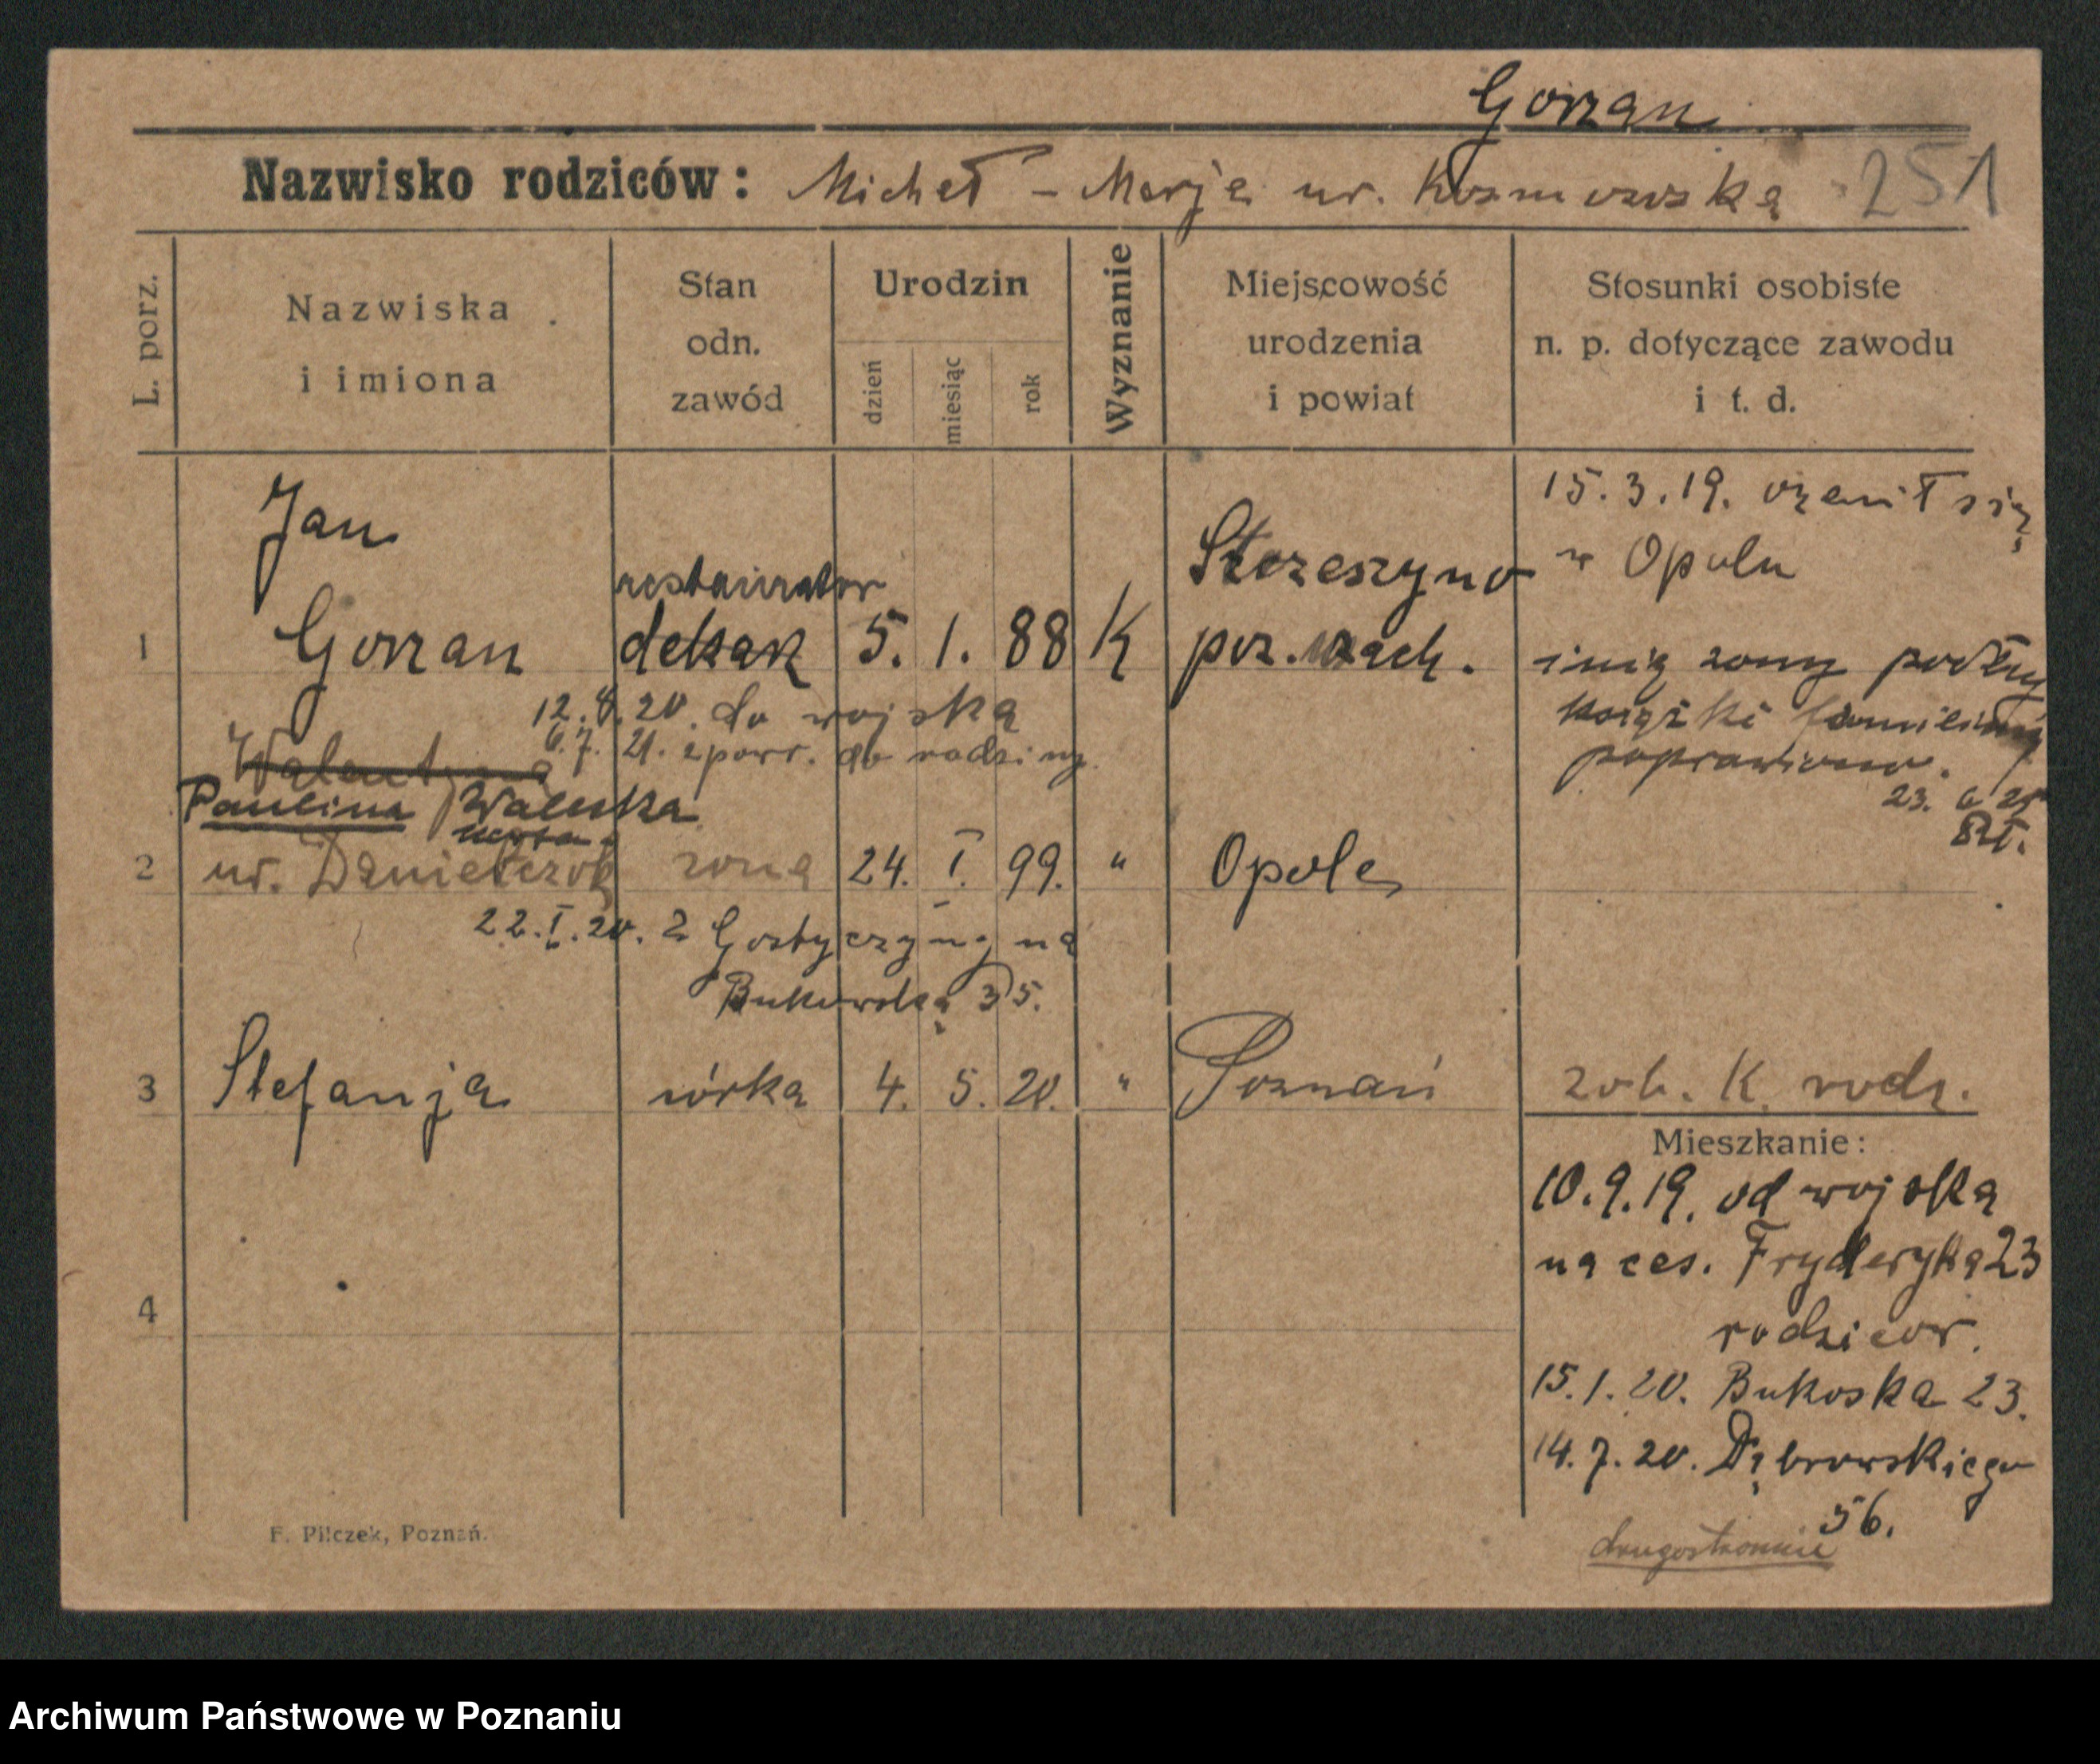 Gorzan
Nazwisko rodziców: Michał - Marja ur. Kosmowska 251
L. porz.
Nazwiska i imiona
Stan odn. zawód
Urodzin
dzień
miesiąc
rok
Wyznanie
Miejscowość urodzenia i powiat
Stosunki osobiste n. p. dotyczące zawodu i t. d.
Jan
1 Gorzan restaurator dekarz 5. 1. 88 K Strzeszyno poz. zach.
15.3.19. ożenił się
w Opolu
imię żony podług
książki familijnej
poprawiono.
23. 6 25
12.8.20. do wojska
6.7. 21. z powr. do rodziny
Walentyna
Paulina Waleska
2 ur. żona 24. I. 99. " Opole
22.I.20. z Gostyczyny na
Bukowską 35.
3 Stefanja córka 4. 5. 20. " Poznań
zob. K. rodz.
Mieszkanie:
10.9.19. od wojska
na ces. Fryderyka 23
rodzicow.
15.1.20. Bukoska 23.
14.7.20. Dąbrowskiego
56.
drugostronnie
4
F. Pilczek, Poznań.
Archiwum Państwowe w Poznaniu